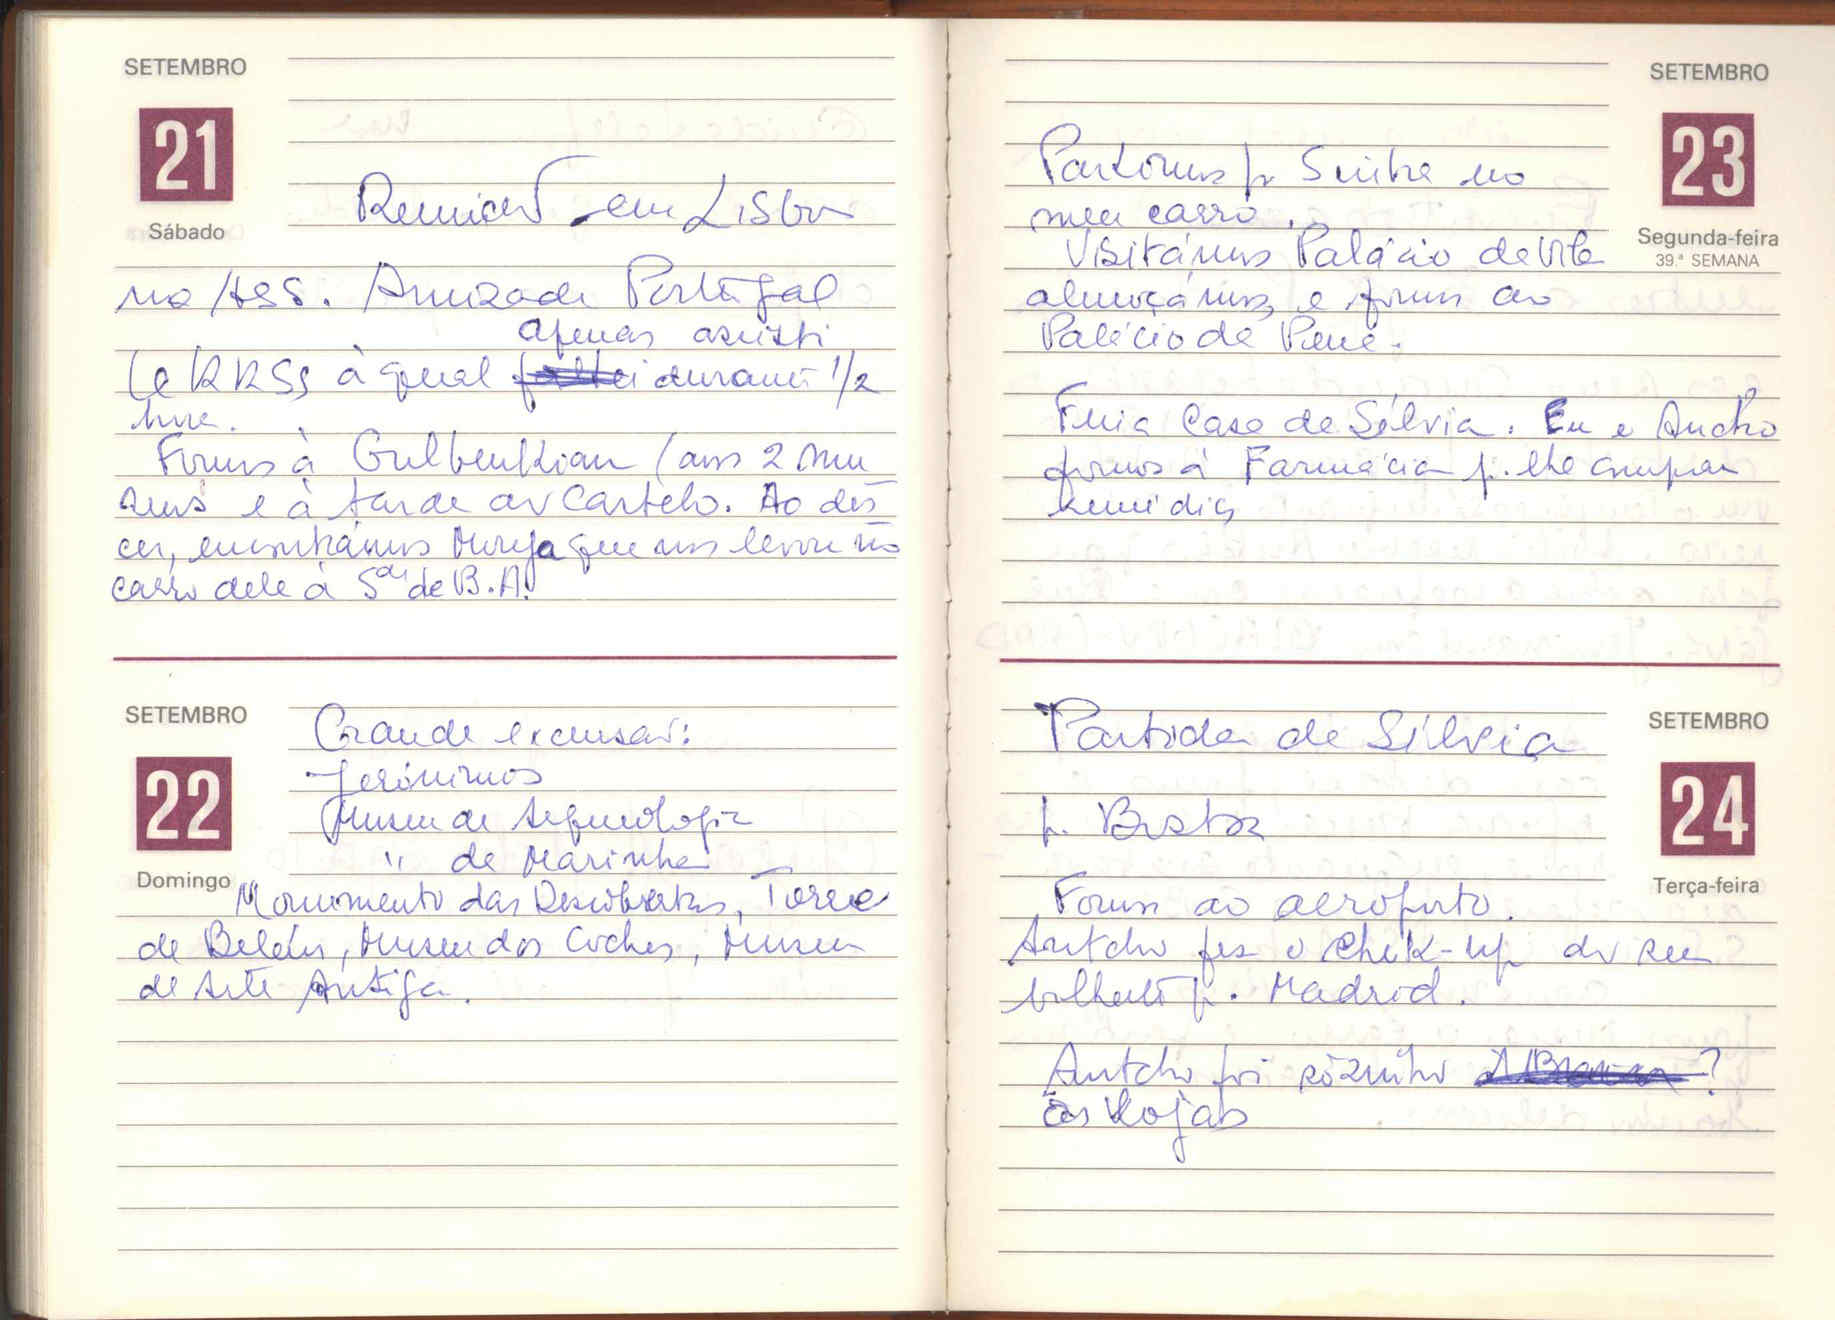 SETEMBRO
21
Sábado
Reunião em Lisboa
na Ass. Amizade Portugal
apenas assisti
à qual faltei durante 1/2
hora.
Fomos à Gulbenkian (aos 2 mu
seus e à tarde ao Castelo. Ao des
cer, encontrámos que nos levou no
carro dele à Sde de B.A.
SETEMBRO
22
Domingo
Grande excursão:
Jerónimos
Museu de Arqueologia
" de Marinha
Monumento das Descobertas, Torre
de Belém, Museu dos Coches, Museu
de Arte Antiga.
SETEMBRO
23
Segunda-feira
39.ª SEMANA
Partimos p. Sintra no
meu carro.
Visitámos Palácio da Vila
almoçámos e fomos ao
Palácio da Pena.
Fomos a Casa de Sílvia. Eu e Antcho
fomos à Farmácia p. lhe comprar
remédios
SETEMBRO
24
Terça-feira
Partida de Sílvia
p.
Fomos ao aeroporto.
Antcho fez o chek-up do seu
bilhete p. Madrid.
Antcho foi sòzinho ?
às lojas